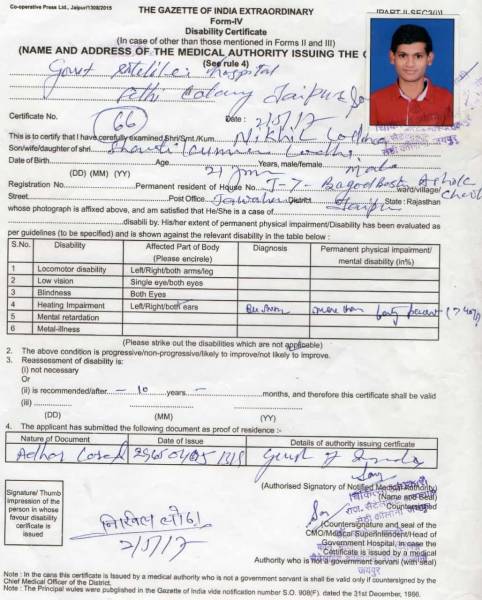 Co-operative Press Ltd., Jaipur/1308/2015
THE GAZETTE OF INDIA EXTRAORDINARY
[PART-II SEC3(i)]
Form-IV
Disability Certificate
(In case of other than those mentioned in Forms II and III)
(NAME AND ADDRESS OF THE MEDICAL AUTHORITY ISSUING THE C
(See rule 4)
Govt Hospital
Colony Jaipur
Certificate No. 66 Date : 2/5/17
This is to certify that I have carefully examined Shri/Smt./Kum. Nikhil
Son/wife/daughter of shri
Date of Birth Age 21 Years, male/female Male
(DD) (MM) (YY)
Registration No. Permanent resident of House No. J-7- ward/village/
Street Post Office Jawahar District Jaipur State : Rajasthan
whose photograph is affixed above, and am satisfied that He/She is a case of
disabili by. His/her extent of permanent physical impairment/Disability has been evaluated as
per guidelines (to be specified) and is shown against the relevant disability in the table below :
S.No. Disability Affected Part of Body (Please encirele) Diagnosis Permanent physical impairment/ mental disability (in%)
1 Locomotor disability Left/Right/both arms/leg
2 Low vision Single eye/both eyes
3 Blindness Both Eyes
4 Heating Impairment Left/Right/both ears more than forty percent (>40%)
5 Mental retardation
6 Metal-illness
(Please strike out the disabilities which are not applicable)
2. The above condition is progressive/non-progressive/likely to improve/not likely to improve.
3. Reassessment of disability is:
(i) not necessary
Or
(ii) is recommended/after - 10 years - months, and therefore this certificate shall be valid
(iii)
(DD) (MM) (YY)
4. The applicant has submitted the following document as proof of residence :-
Nature of Document Date of Issue Details of authority issuing certificate
Adhar Card Govt of India
(Authorised Signatory of Notified Medical Authority)
(Name and Seal)
Countersigned
Signature/ Thumb impression of the person in whose favour disability certificate is issued
2/5/17
(Countersignature and seal of the
CMO/Medical Superintendent/Head of
Government Hospital, in case the
Certificate is issued by a medical
Authority who is not a government servant (with seal)
जयपुर
Note : In the cans this certificate is issued by a medical authority who is not a government servant shall be valid only if countersigned by the
Chief Medical Officer of the District.
Note : The Principal wules were pulblished in the Gazette of India vide notification number S.O. 908(F). dated the 31st December, 1966.